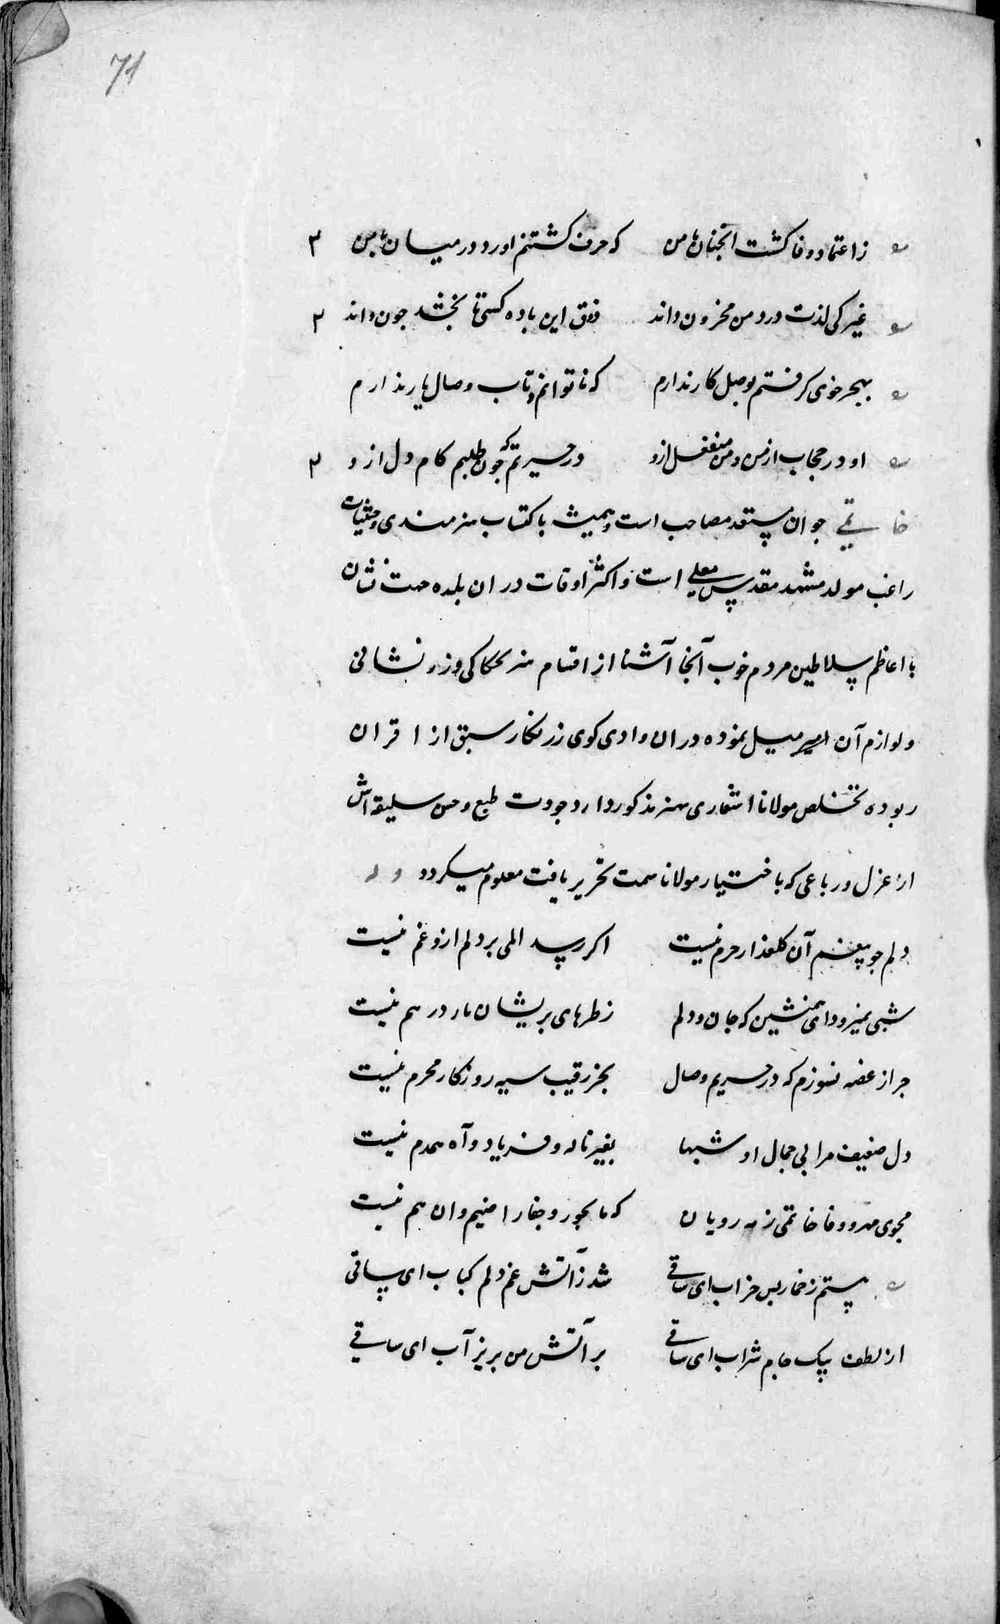 71
ز اعتماد وفا کشت آنچنان با من که حرف کشتنم اورد در میان با من ۲
غیر کی لذت درد من محزون داند ذوق این باده کسی تا نچشد چون داند ۲
بهجر خوی کرفتم بوصل کار ندارم که ناتوانم و تاب وصال یار ندارم
او در حجاب از من و من منفعل ازو در حیرتم که چون طلبم کام دل از و ۲
خاتمی جوان مستعد مصاحب است و همیشه باکتساب هنرمندی و حیثیات
راغب مولد مشهد مقدس معلی است و اکثر اوقات در ان بلده جنت نشان
با اعاظم سلاطین مردم خوب آنجا آشنا از اقسام هنر بحکاکی و زرنشانی
و لوازم آن امیر میل نموده در ان وادی کوی زرنکار سبق از اقران
ربوده تخلص مولانا اشعاری هنر مذکور دارد جودت طبع و حسن سلیقه اش
از غزل و رباعی که باختیار مولانا سمت تحریر یافت معلوم میکردد وله
دلم جو بیغم آن کلعذار خرم نیست اکر رسد المی بر دلم ازو غم نیست
شبی نمیرود ای همنشین که جان و دلم ز طرهای پریشان یار در هم نیست
جرا ز غصه نسوزم که در حریم وصال بجز رقیب سیه روزکار محرم نیست
دل ضعیف مرا بی جمال او شبها بغیر ناله و فریاد و آه همدم نیست
مجوی مهر و وفا خاتمی ز مه رویان که ما بجور و جفا راضیم و ان هم نیست
هستم ز خمار بس خراب ای ساقی شد ز آتش غم دلم کباب ای ساقی
از لطف بیک جام شراب ای ساقی بر آتش من بریز آب ای ساقی